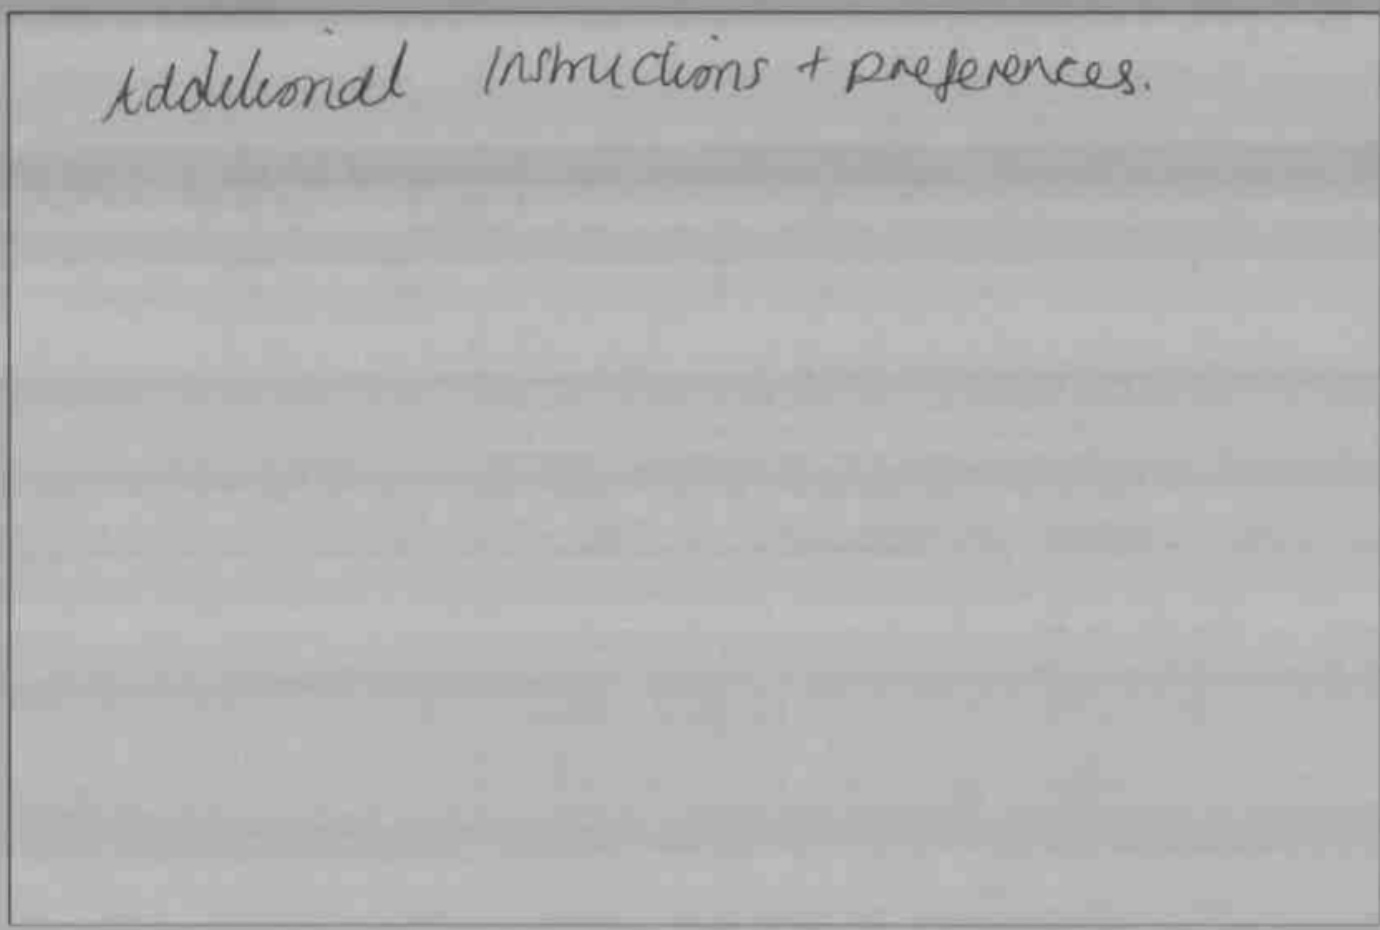 Additional Instructions + preferences.